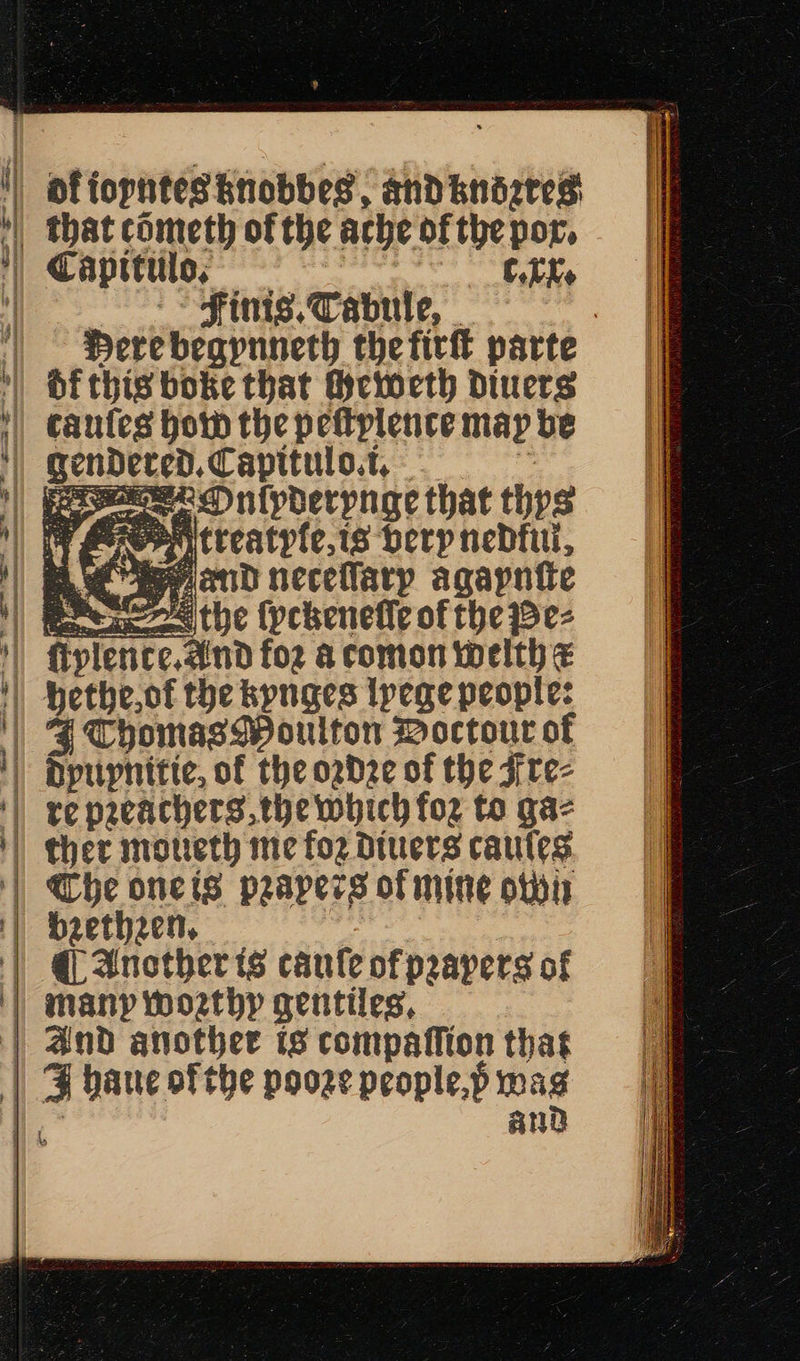 of ioyntes knobbes, and knörres
that cōmeth of the ache of the pox.
Capitulo. C.xx.
Finis. Tabule,
Here begynneth the first parte
Of this boke that sheweth diuers
causes how the pestylence may be
gendered. Capitulo.i.
Onsyderynge that thys
treatyse, is very nedful,
and necessary agaynste
the syckenesse of the Pe-
stylence. And for a comon welth &
hethe, of the kynges lyege people:
I Thomas Moulton Doctour of
Dyuynitie, of the ordre of the Fre-
re preachers, the which for to ga-
ther moueth me for diuers causes
The one is prayers of mine own
brethren.
¶ Another is cause of prayers of
many worthy gentiles.
And another is compassion that
I haue of the poore people, þ was
and